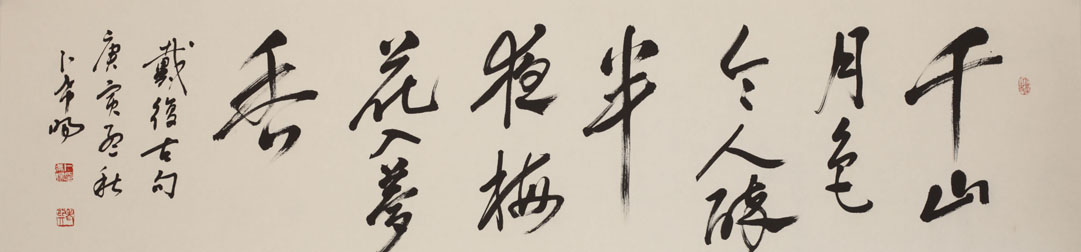 千山
月色
令人醉
半
夜梅
花入夢
香
戴復古句
庚寅孟秋